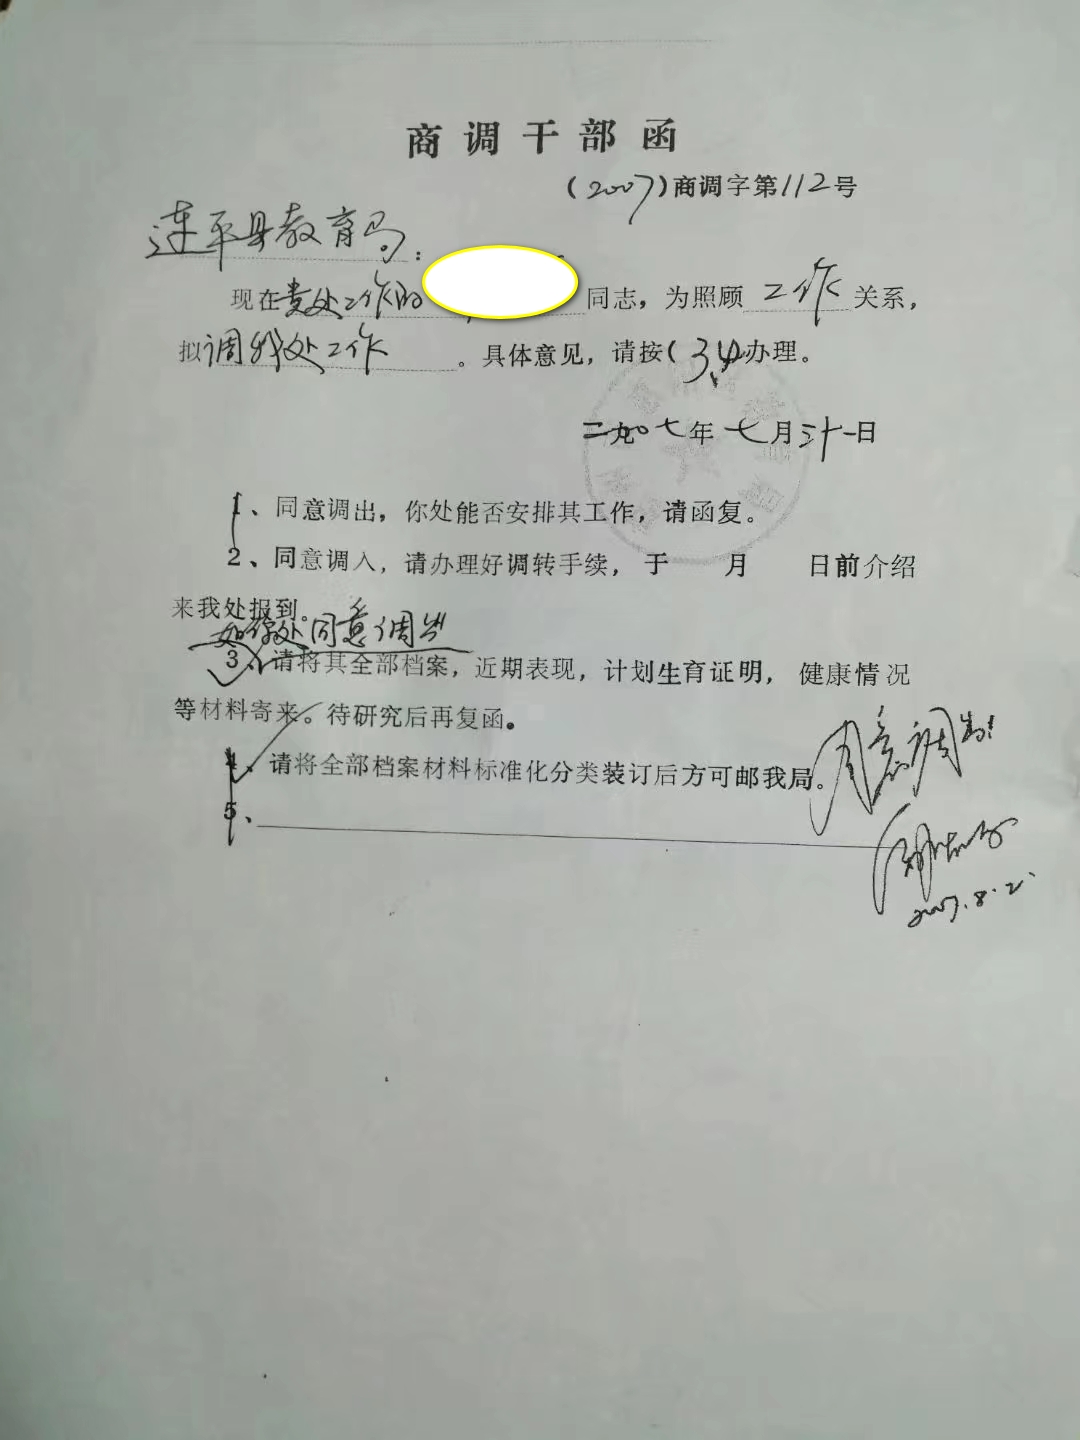 商调干部函
（2007）商调字第112号
连平县教育局：
现在贵处工作的 同志，为照顾工作关系，
拟调我处工作。具体意见，请按（3、4办理。
二九〇七年七月三十一日
1、同意调出，你处能否安排其工作，请函复。
2、同意调入，请办理好调转手续，于 月 日前介绍
来我处报到。
如你处同意调出
3、请将其全部档案，近期表现，计划生育证明，健康情况
等材料寄来。待研究后再复函。
4、请将全部档案材料标准化分类装订后方可邮我局。
5、
同意调出！
2007.8.2.